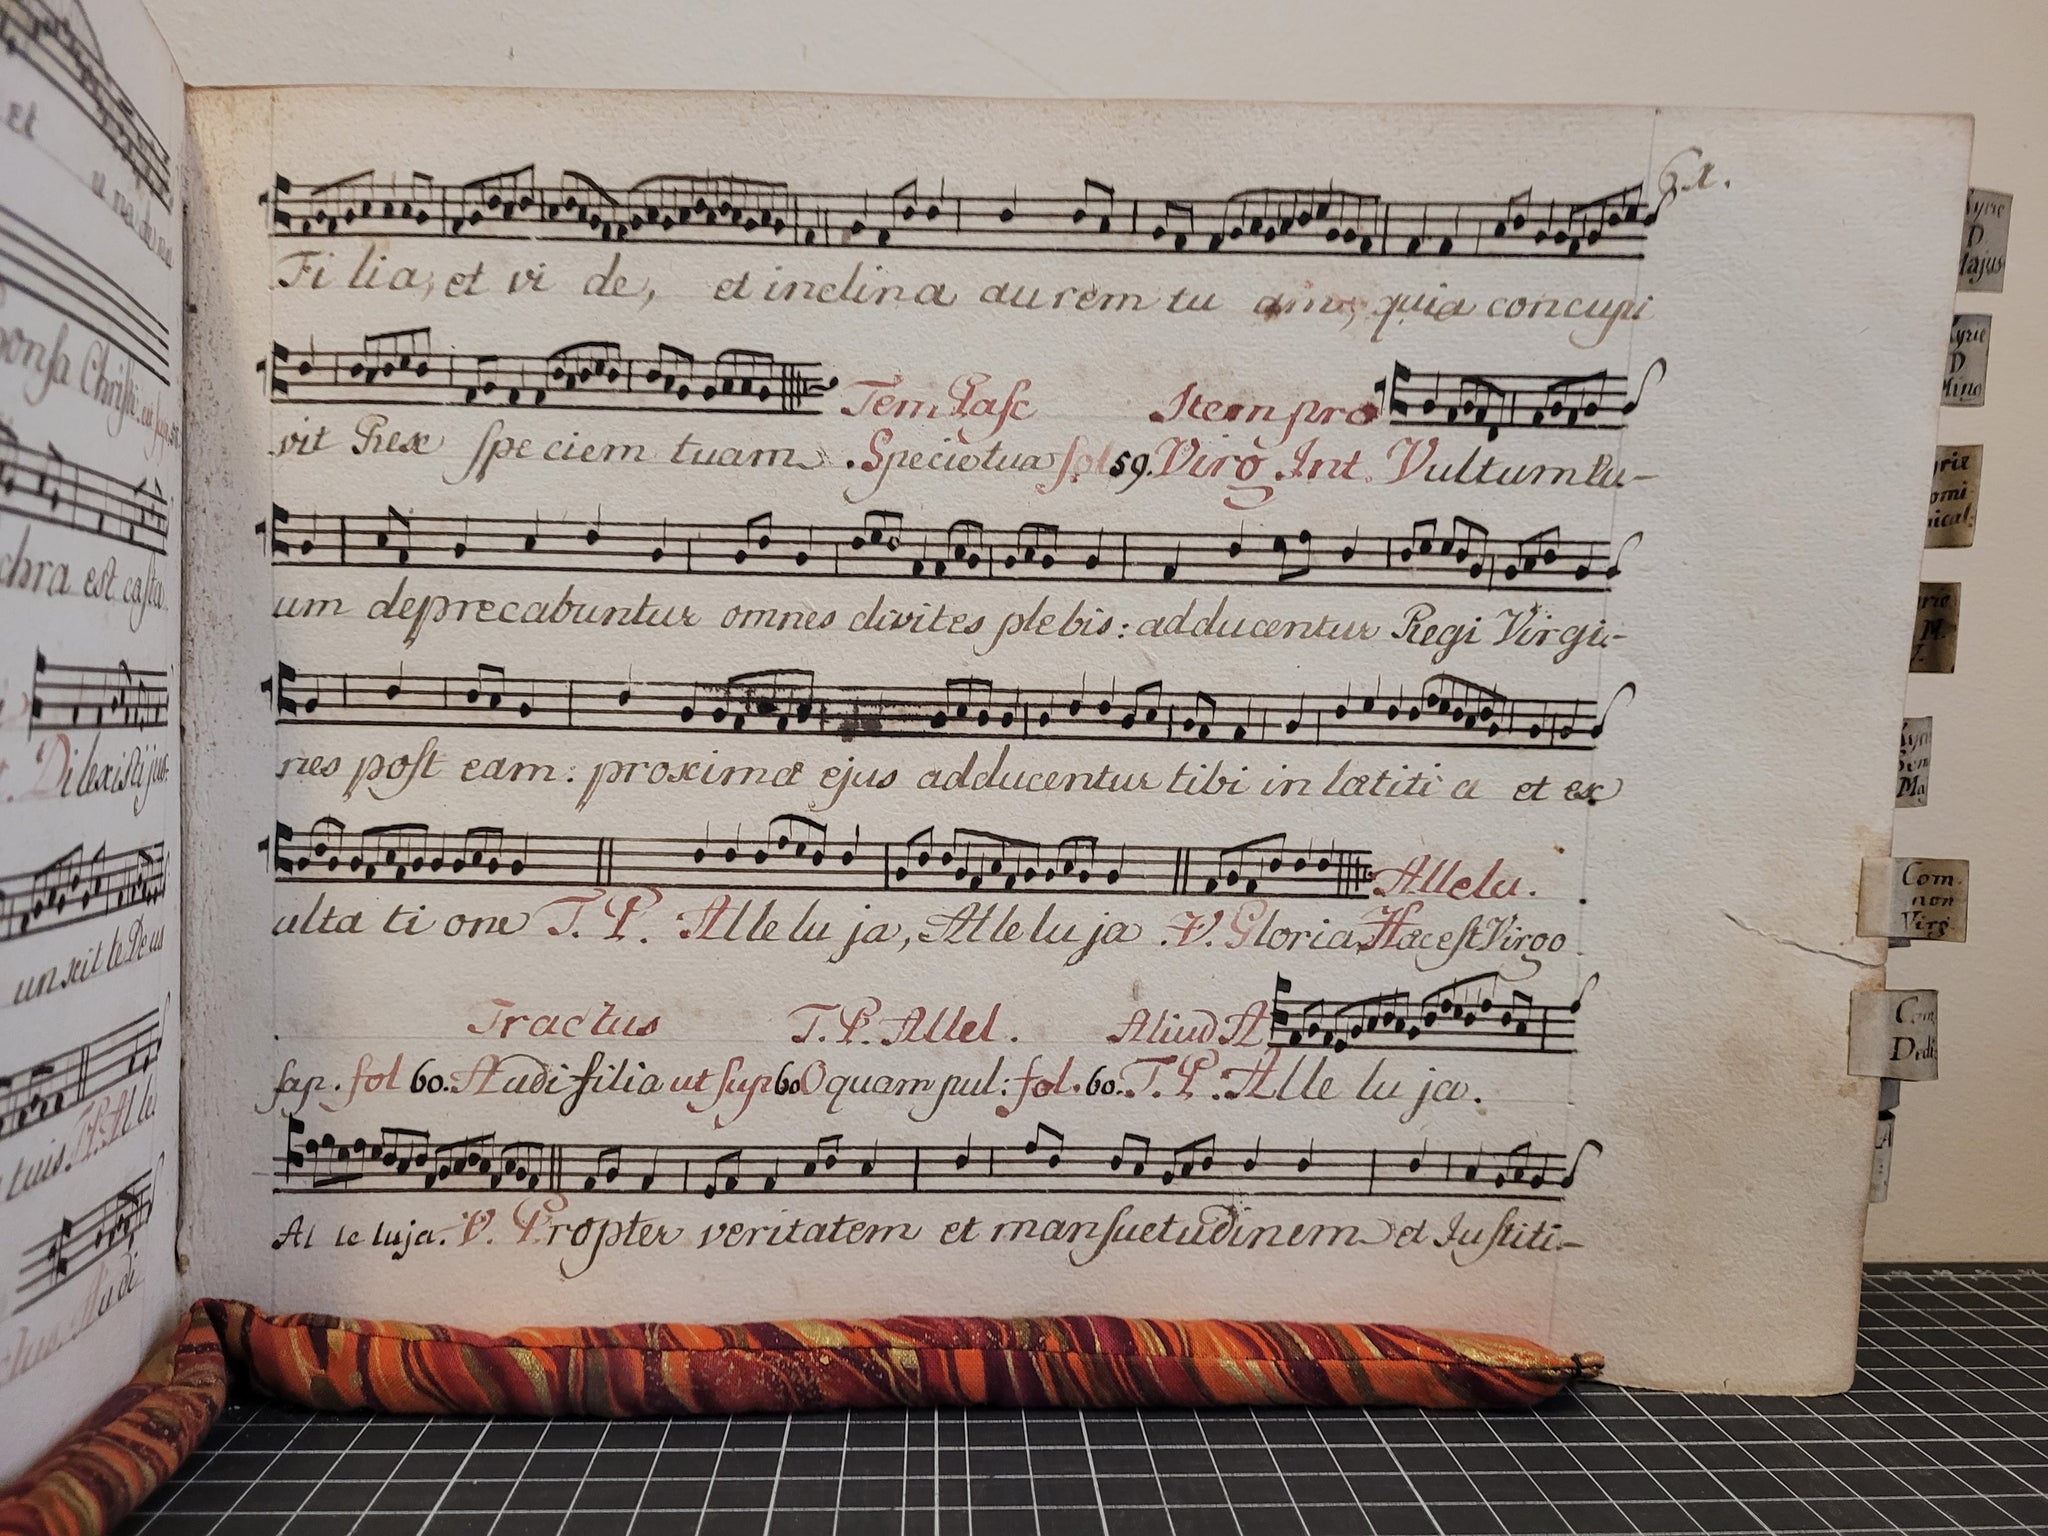 61.
Fi lia, et vi de, et inclina aurem tu am, quia concupi
Tem Pasc Item pro
vit Rex speciem tuam. Specie tua fol 59. Virg. Int. Vultum tu-
um deprecabuntur omnes divites plebis: adducentur Regi Virgi-
nes post eam: proximæ ejus adducentur tibi in lætiti a et ex
Allelu.
ulta ti one T. P. Alle lu ja, Alle lu ja. V. Gloria Hæc est Virgo
Tractus T. P. Allel. Aliud A
sap. fol 60. Audi filia ut sup 60 O quam pul: fol. 60. T. P. Alle lu ja.
Al le luja. V. Propter veritatem et mansuetudinem et Justiti-
et
onsa Christi
chra est casta
Dilexisti jus-
unxit te Deus
tuis T.P. Al le
Audi
Kyrie
D
Majus
Kyrie
D
Mino
Com.
non
Virg.
Com
Dedi